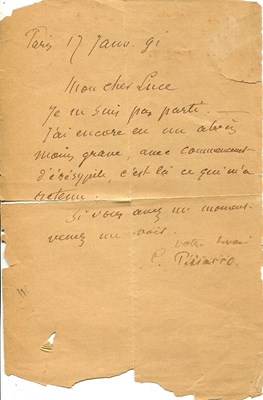 Paris 17 Janv. 91
Mon cher Luce
Je ne suis pas parti.
J'ai encore eu un abcès
moins grave, avec commencement
d'érésypèle, c'est là ce qui m'a
retenu.
Si vous avez un moment
venez me voir.
votre
C. Pissarro